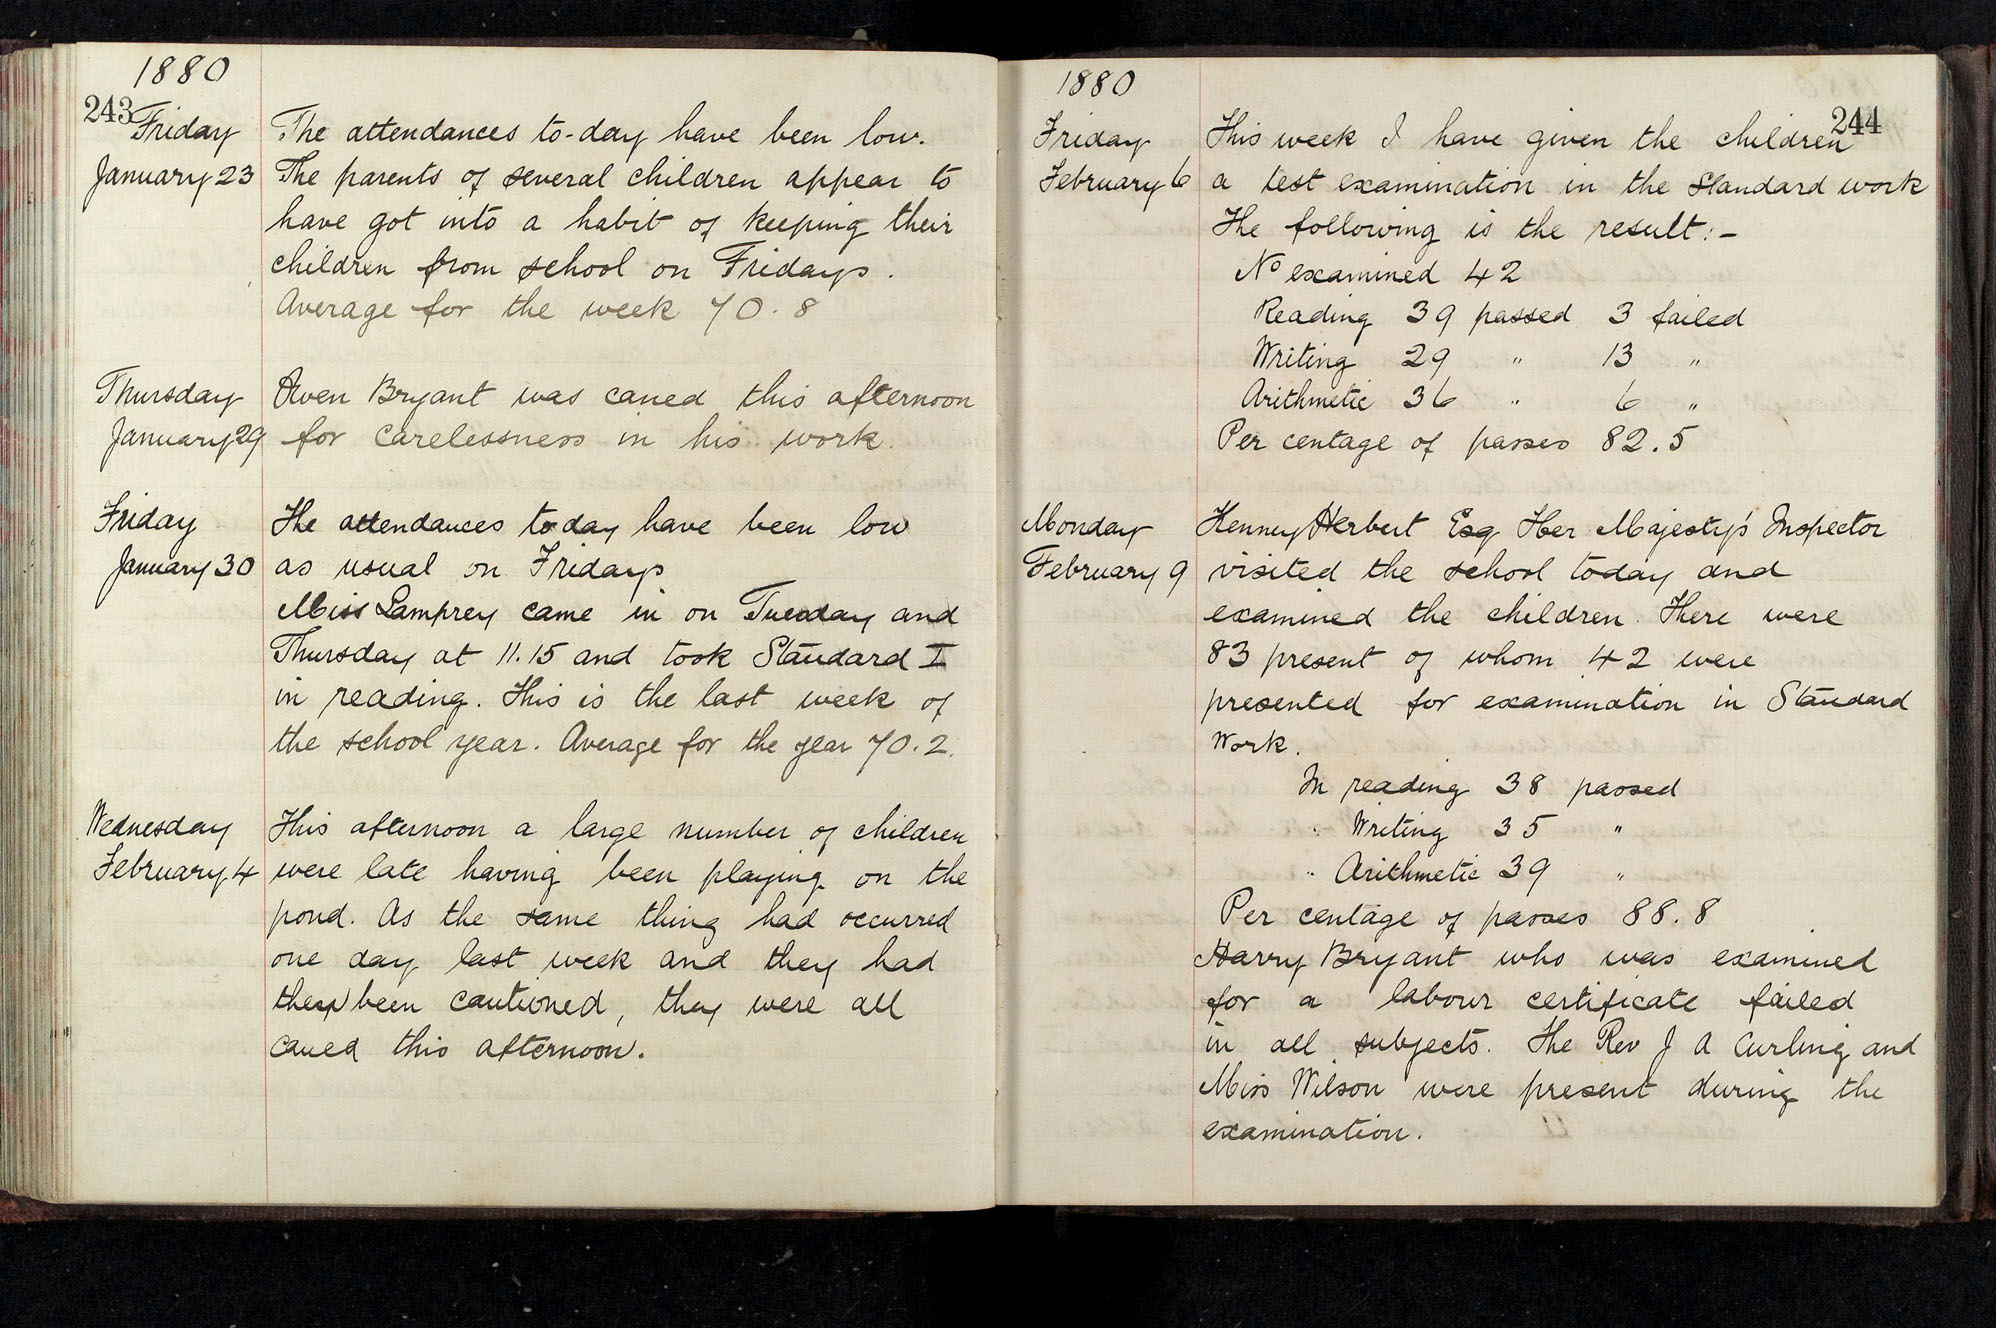 1880
243
Friday
January 23
The attendances to-day have been low.
The parents of several children appear to
have got into a habit of keeping their
children from school on Fridays.
Average for the week 70.8
Thursday
January 29
Owen Bryant was caned this afternoon
for carelessness in his work.
Friday
January 30
The attendances today have been low
as usual on Fridays
Miss Lamprey came in on Tuesday and
Thursday at 11.15 and took Standard I
in reading. This is the last week of
the school year. Average for the year 70.2.
Wednesday
February 4
This afternoon a large number of children
were late having been playing on the
pond. As the same thing had occurred
one day last week and they had
then been cautioned, they were all
caned this afternoon.
1880
244
Friday
February 6
This week I have given the children
a test examination in the Standard work
The following is the result:-
No examined 42
Reading 39 passed 3 failed
Writing 29 " 13 "
Arithmetic 36 " 6 "
Per centage of passes 82.5
Monday
February 9
Kenney Herbert Esq Her Majesty's Inspector
visited the school today and
examined the children. There were
83 present of whom 42 were
presented for examination in Standard
Work.
In reading 38 passed
" Writing 35 "
" Arithmetic 39 "
Per centage of passes 88.8
Harry Bryant who was examined
for a labour certificate failed
in all subjects. The Rev J A Curling and
Miss Wilson were present during the
examination.